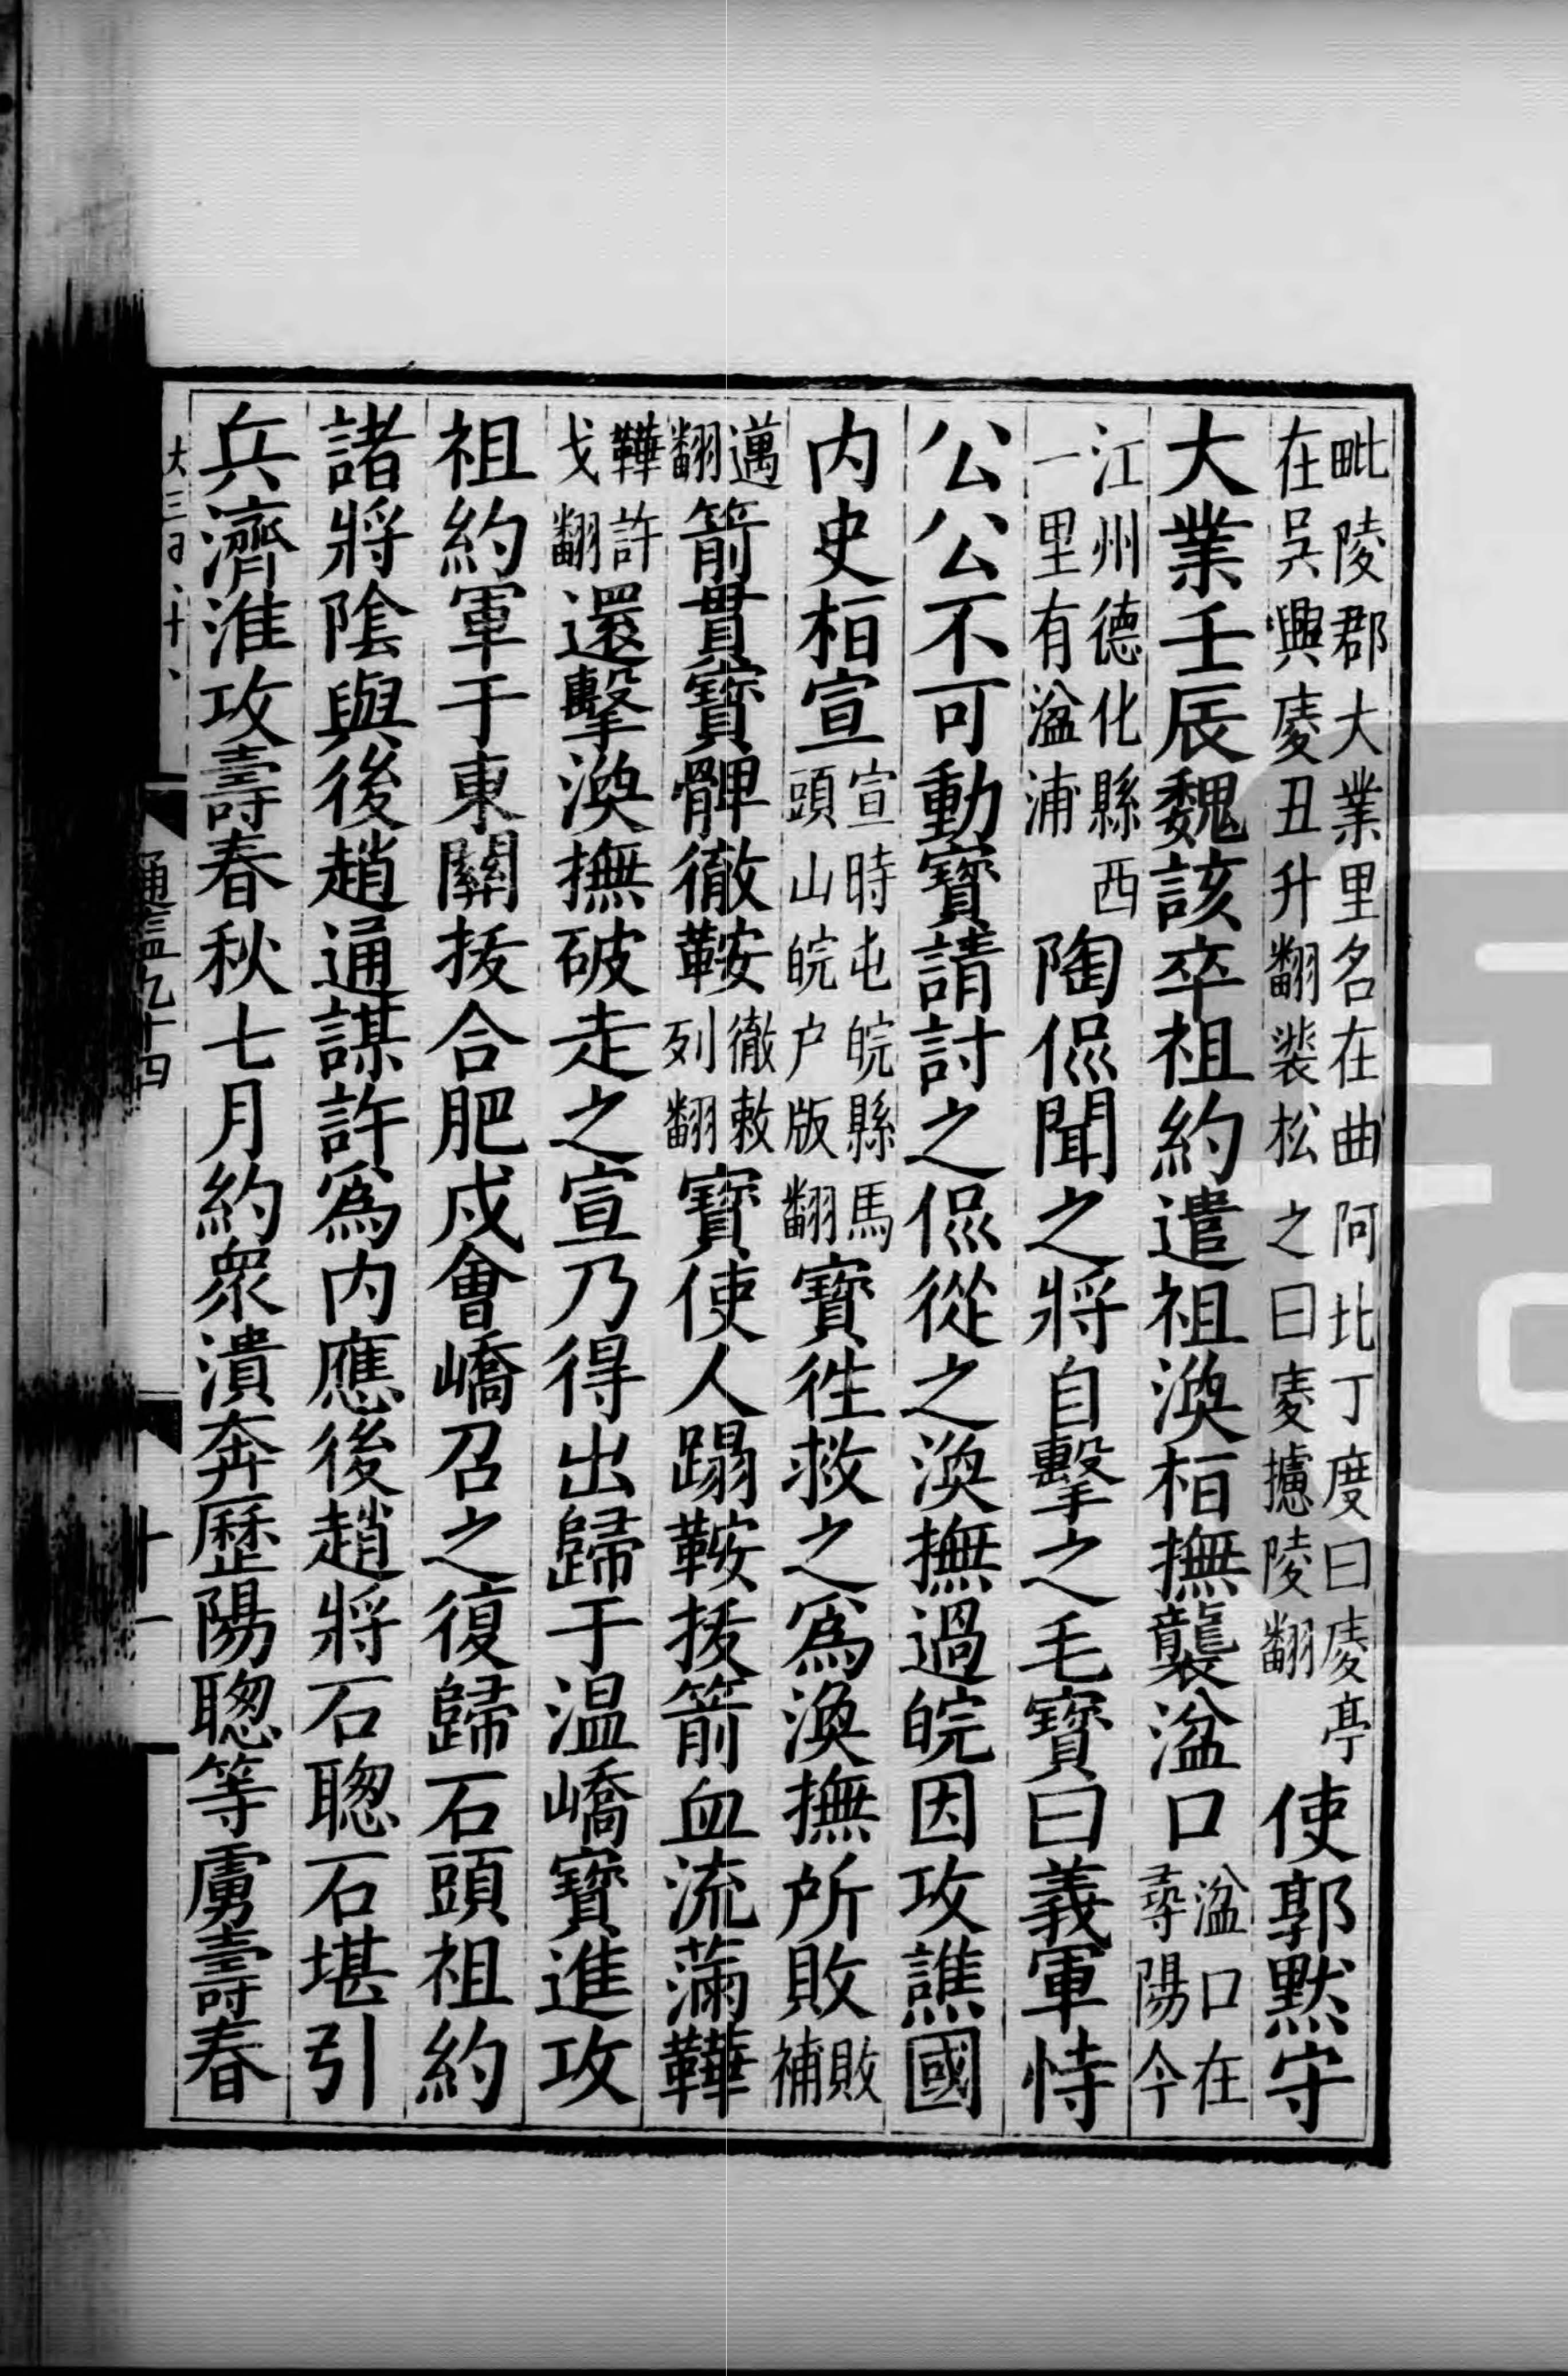 毗陵郡大業里名在曲阿北丁度曰庱亭在吳興庱丑升翻裴松之曰庱攄陵翻使郭默守
大業壬辰魏該卒祖約遣祖渙桓撫襲湓口湓口在尋陽今
江州德化縣西一里有湓浦陶侃聞之將自擊之毛寶曰義軍恃
公公不可動寶請討之侃從之渙撫過皖因攻譙國
内史桓宣宣時屯皖縣馬頭山皖户版翻寶往救之爲渙撫所敗敗補
邁翻箭貫寶髀徹鞍徹敕列翻寶使人蹋鞍拔箭血流滿鞾
鞾許戈翻還擊渙撫破走之宣乃得出歸于温嶠寶進攻
祖約軍于東關拔合肥戍會嶠召之復歸石頭祖約
諸將陰與後趙通謀許爲内應後趙將石聰石堪引
兵濟淮攻壽春秋七月約衆潰奔歷陽聰等虜壽春
通鑑九十四
十一